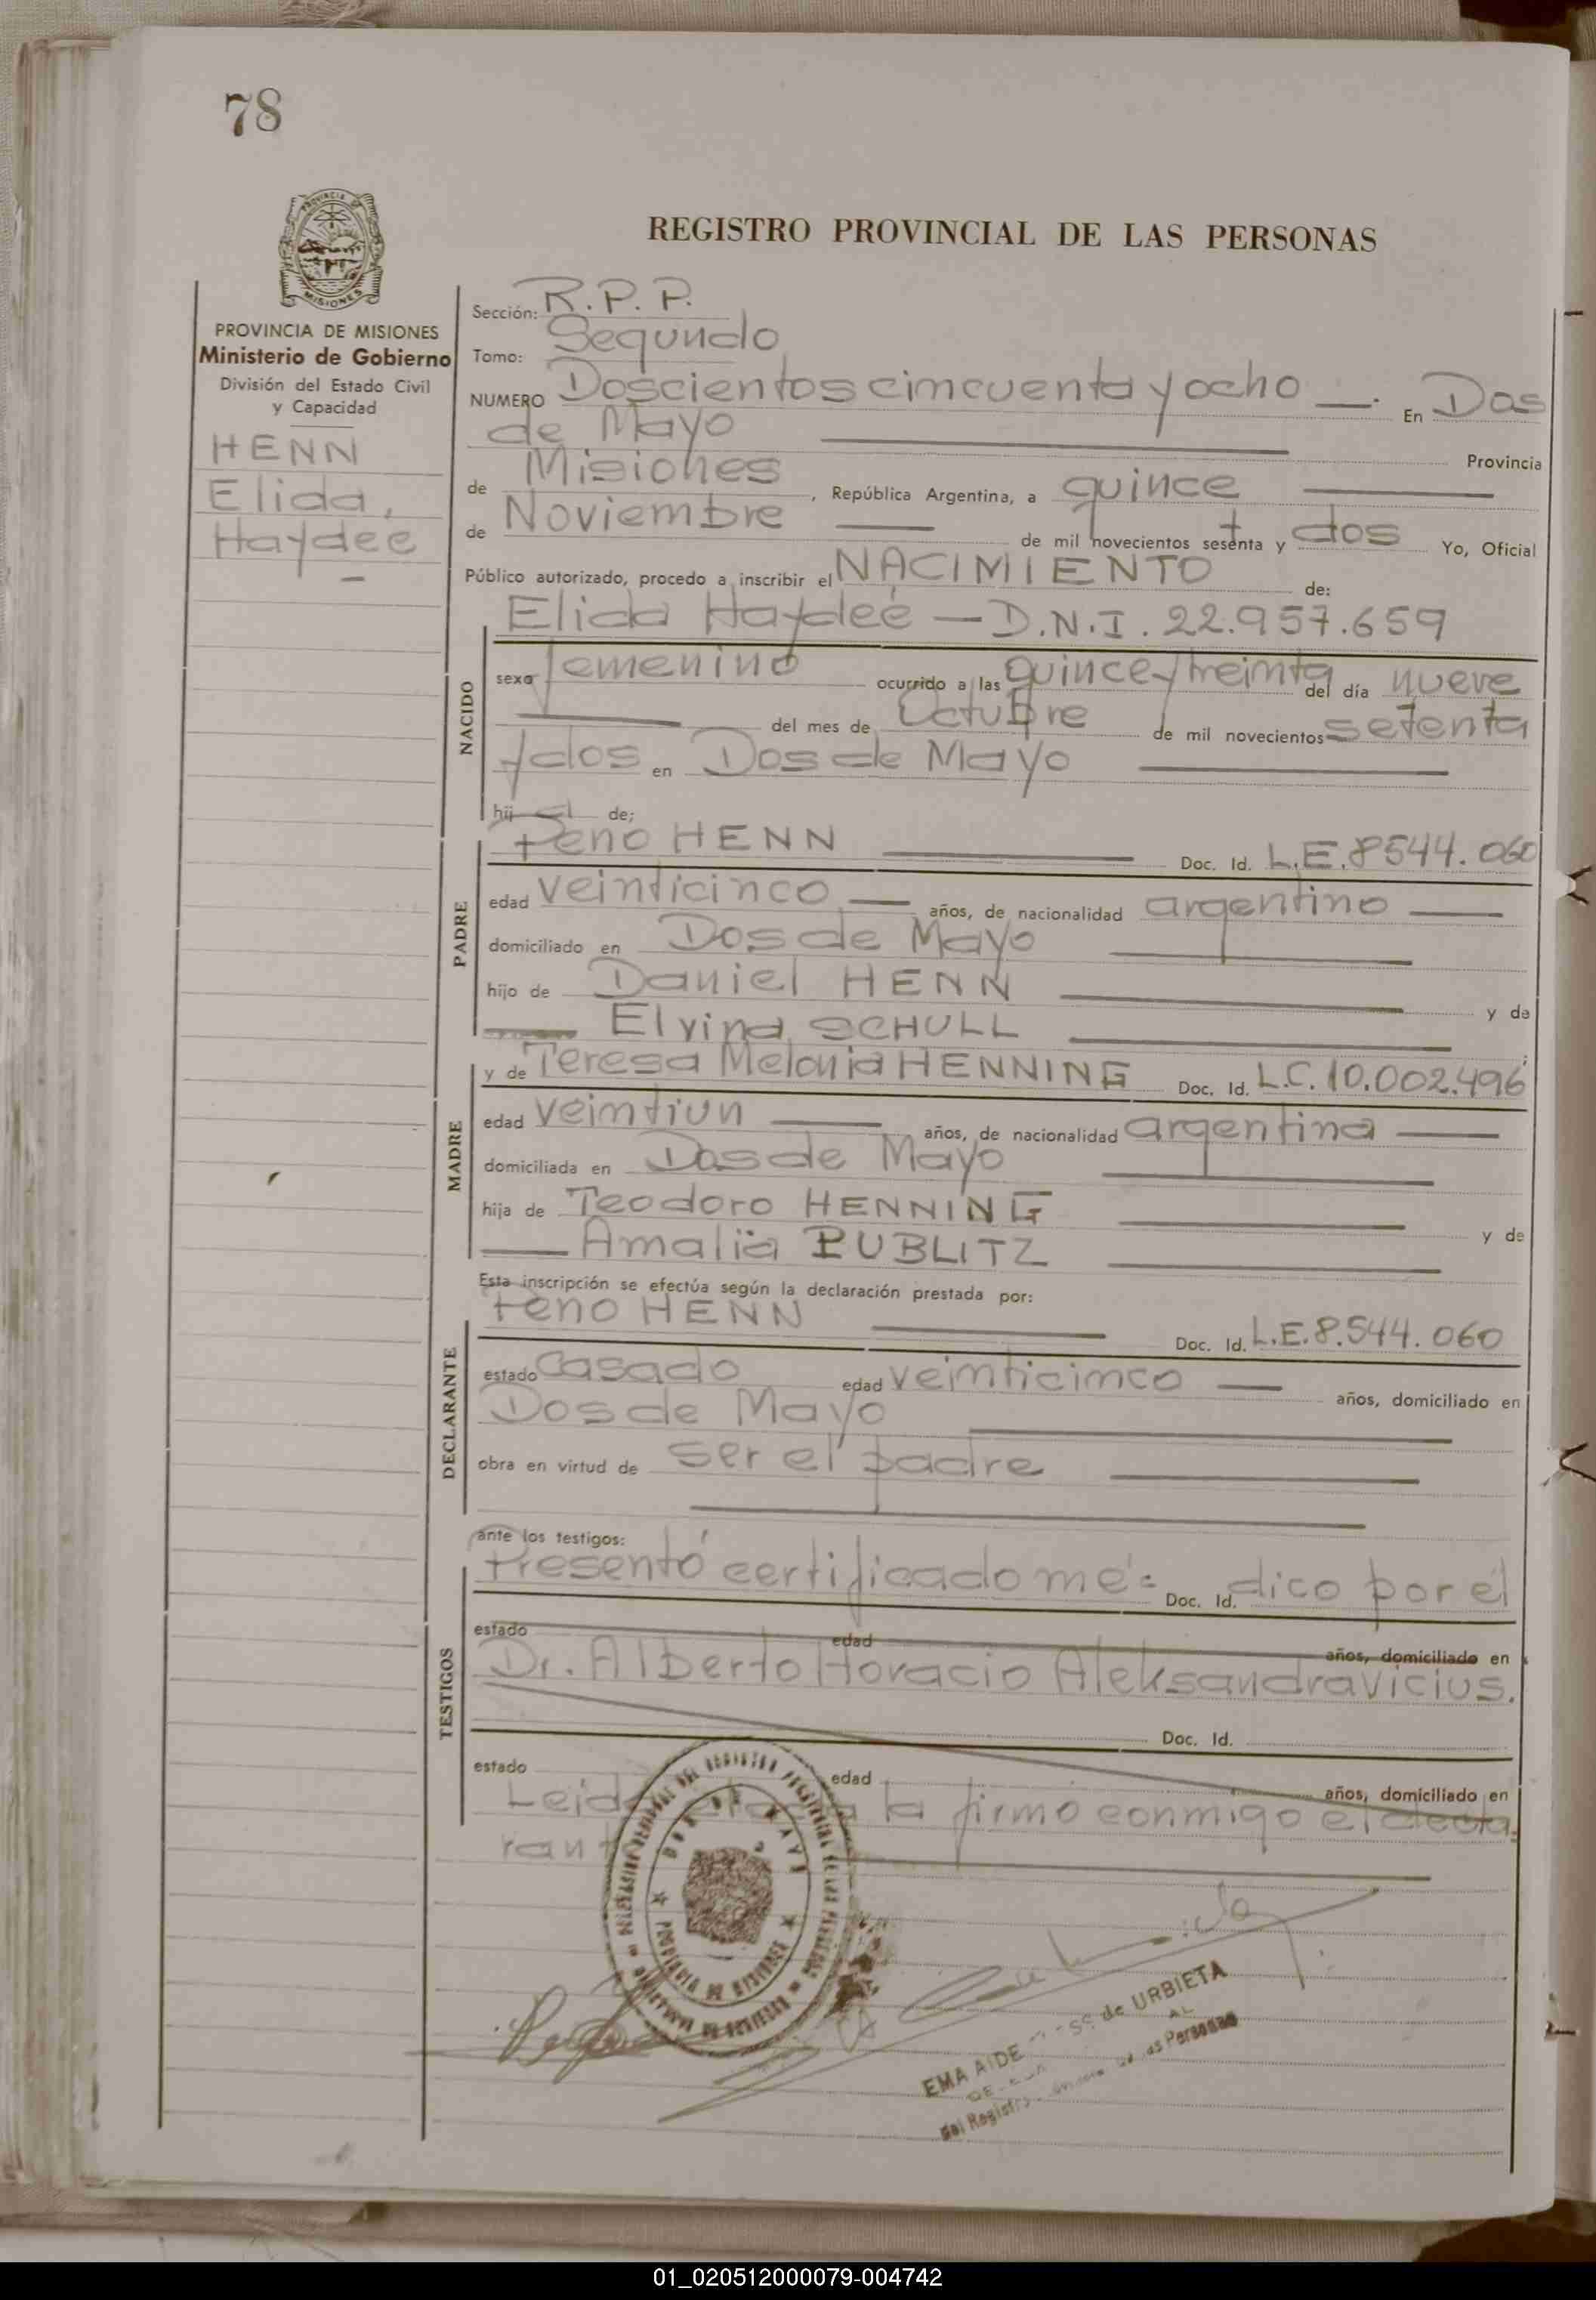 78
REGISTRO PROVINCIAL DE LAS PERSONAS
PROVINCIA DE MISIONES
Ministerio de Gobierno
División del Estado Civil
y Capacidad
HENN
Elida,
Haydee
Sección: R.P.P.
Tomo: Segundo
NUMERO Doscientos cincuenta y ocho —. En Dos
de Mayo Provincia
de Misiones, República Argentina, a quince
de Noviembre de mil novecientos setenta y dos Yo, Oficial
Público autorizado, procedo a inscribir el NACIMIENTO de:
Elida Haydeé — D.N.I. 22.957.659
NACIDO
sexo femenino ocurrido a las quince y treinta del día nueve
del mes de Octubre de mil novecientos setenta
y dos en Dos de Mayo
hija de;
PADRE
HENN Doc. Id. L.E. 8544.060
edad veinticinco años, de nacionalidad argentino
domiciliado en Dos de Mayo
hijo de Daniel HENN y de
Elvina SCHULL
MADRE
y de Teresa Melania HENNING Doc. Id. L.C. 10.002.496
edad veintiun años, de nacionalidad argentina
domiciliada en Dos de Mayo
hija de Teodoro HENNING y de
Amalia PUBLITZ
Esta inscripción se efectúa según la declaración prestada por:
DECLARANTE
HENN Doc. Id. L.E. 8.544.060
estado casado edad veinticinco años, domiciliado en
Dos de Mayo
obra en virtud de ser el padre
ante los testigos:
TESTIGOS
Presentó certificado mé= Doc. Id. dico por el
estado edad años, domiciliado en
Dr. Alberto Horacio Aleksandravicius.
Doc. Id.
estado edad años, domiciliado en
la firmo conmigo el decla=
DOS DE MAYO
PROVINCIA DE MISIONES
EMA AIDE de URBIETA
del Registro de las Personas
01_020512000079-004742